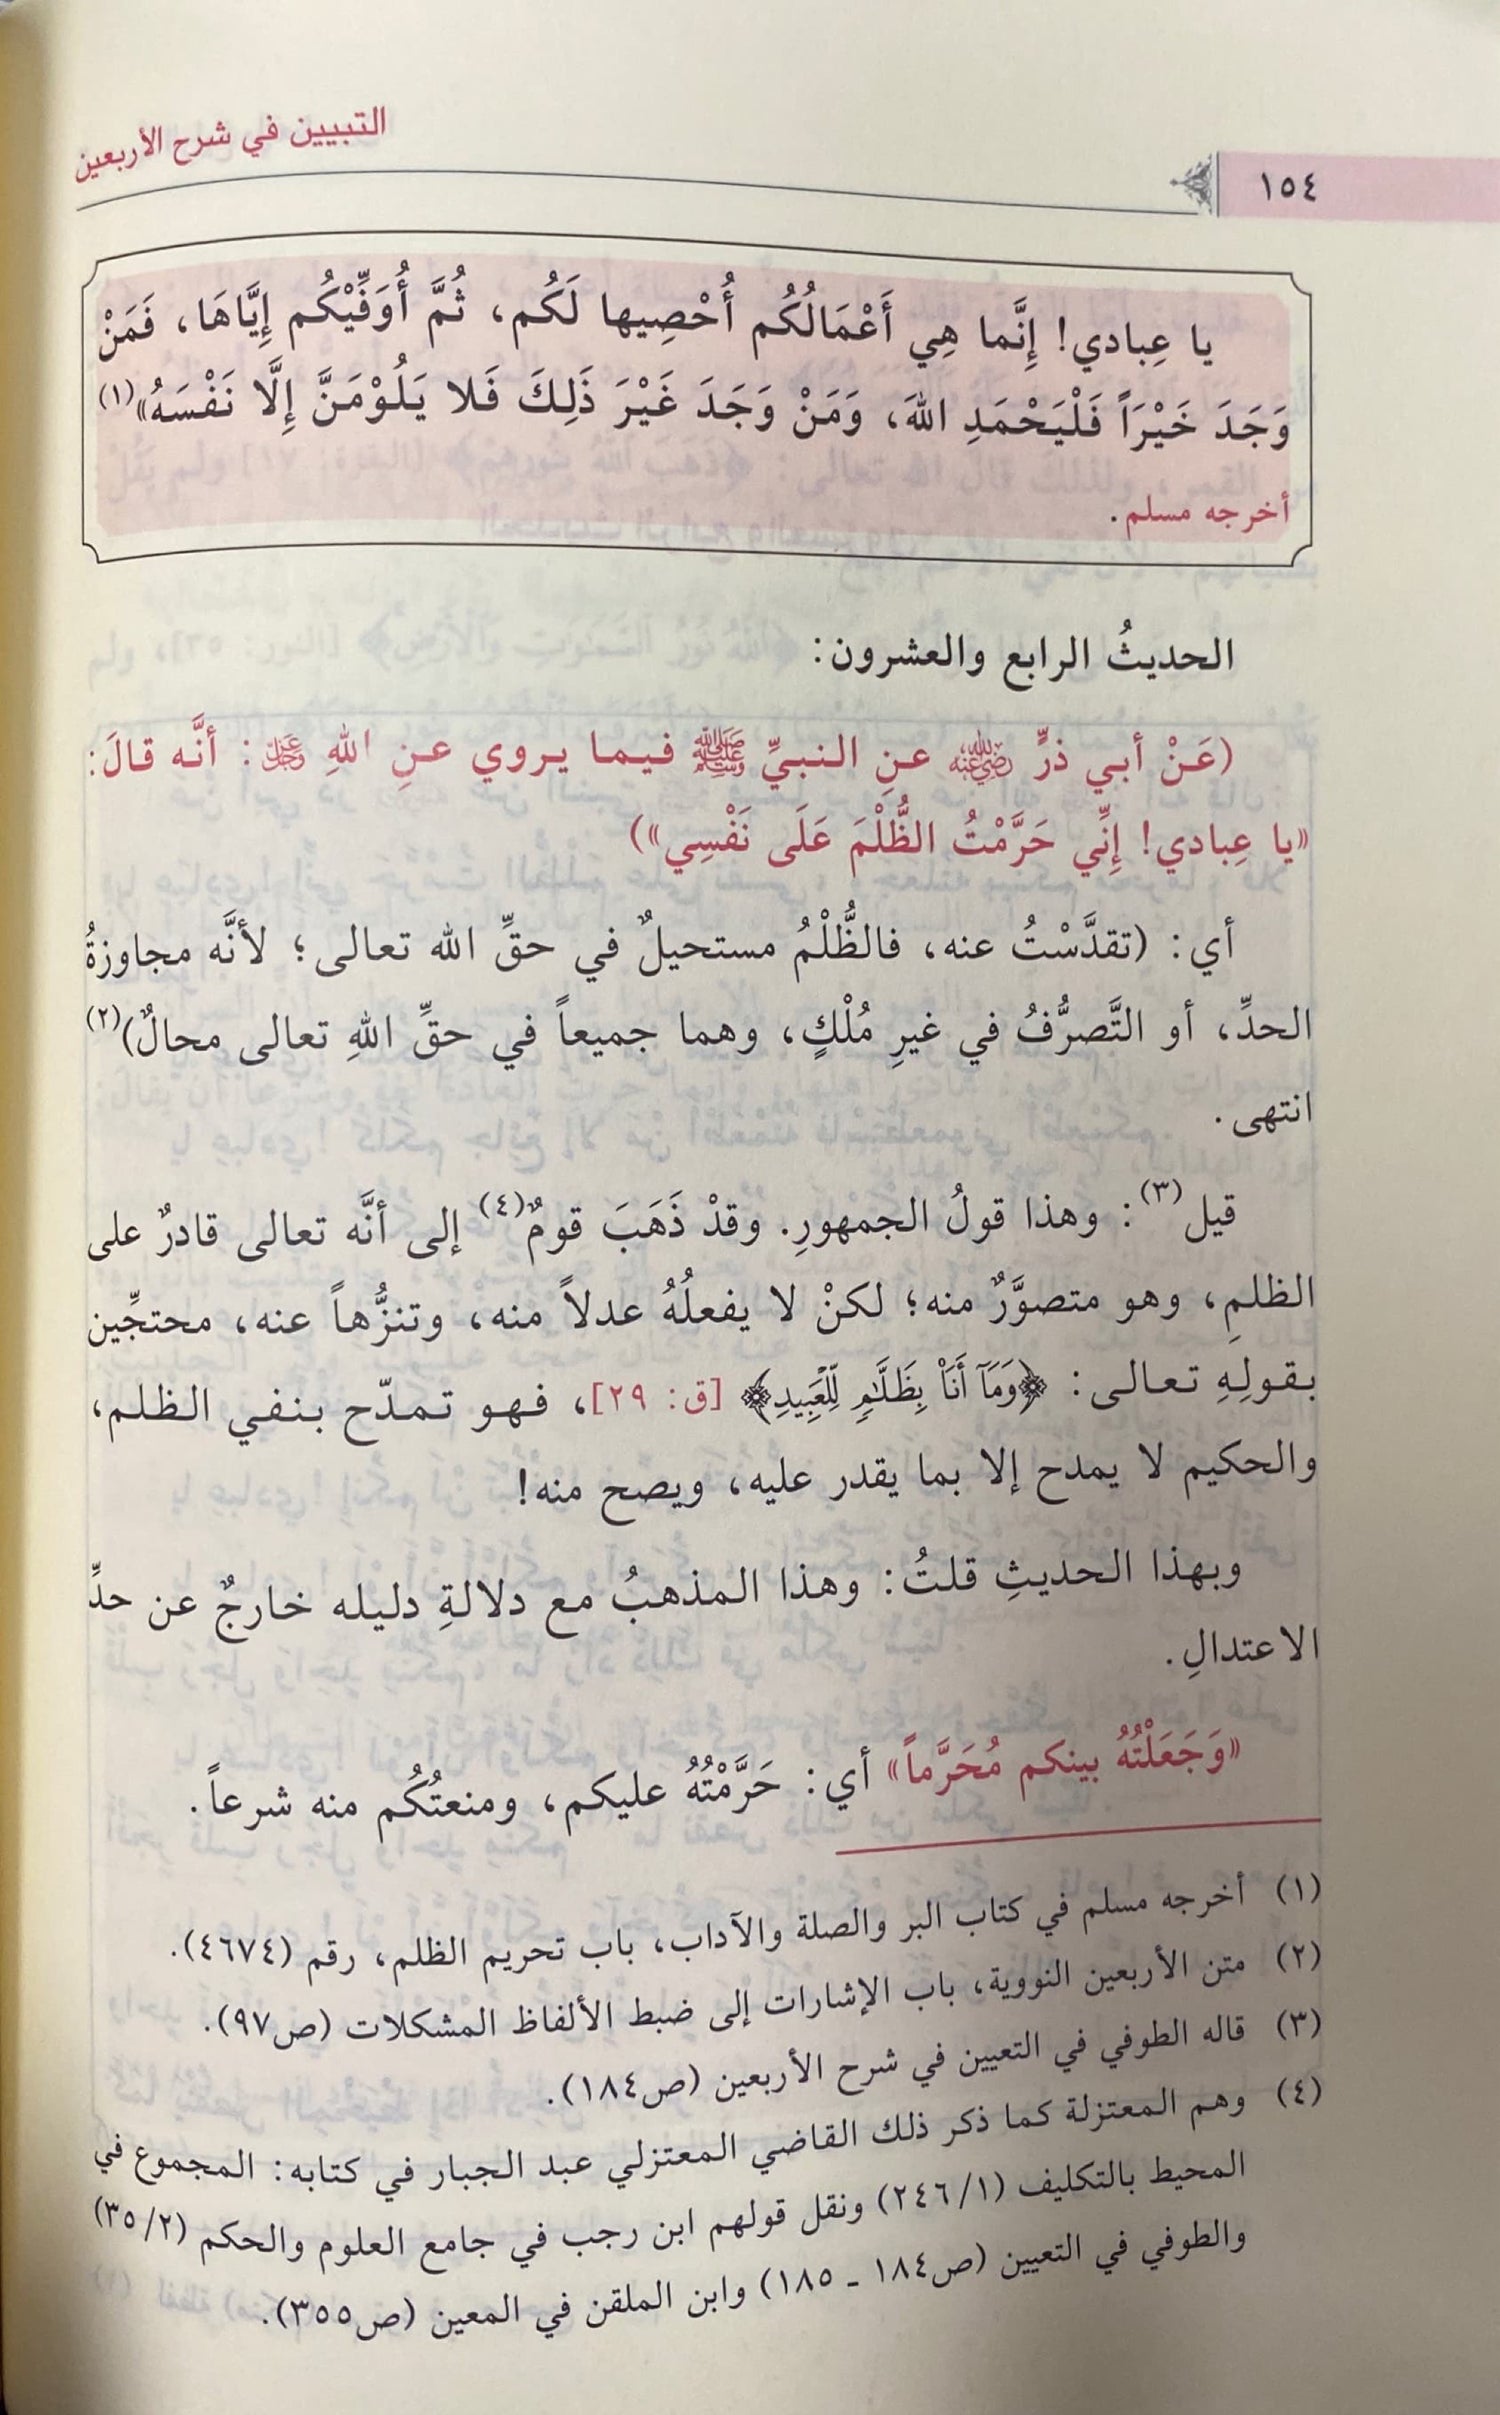 ١٥٤
التبيين في شرح الأربعين
يا عِبادي! إِنَّما هِي أَعْمَالُكُم أُحْصِيها لَكُم، ثُمَّ أُوَفِّيْكُم إِيَّاهَا، فَمَنْ
وَجَدَ خَيْرَاً فَلْيَحْمَدِ اللهَ، وَمَنْ وَجَدَ غَيْرَ ذَلِكَ فَلا يَلُوْمَنَّ إِلَّا نَفْسَهُ»(١)
أخرجه مسلم.
الحديثُ الرابع والعشرون:
(عَنْ أبي ذرٍّ رضي الله عنه عنِ النبيِّ ﷺ فيما يروي عنِ اللهِ عز وجل: أنَّه قالَ:
«يا عِبادي! إِنِّي حَرَّمْتُ الظُّلْمَ عَلَى نَفْسِي»)
أي: (تقدَّسْتُ عنه، فالظُّلْمُ مستحيلٌ في حقِّ الله تعالى؛ لأنَّه مجاوزةُ
الحدِّ، أو التَّصرُّفُ في غيرِ مُلْكٍ، وهما جميعاً في حقِّ اللهِ تعالى محالٌ)(٢)
انتهى.
قيل(٣): وهذا قولُ الجمهورِ. وقدْ ذَهَبَ قومٌ(٤) إلى أنَّه تعالى قادرٌ على
الظلمِ، وهو متصوَّرٌ منه؛ لكنْ لا يفعلُهُ عدلاً منه، وتنزُّهاً عنه، محتجِّين
بقولِهِ تعالى: ﴿وَمَآ أَنَا۠ بِظَلَّٰمٍ لِّلْعَبِيدِ﴾ [ق: ٢٩]، فهو تمدّح بنفي الظلم،
والحكيم لا يمدح إلا بما يقدر عليه، ويصح منه!
وبهذا الحديثِ قلتُ: وهذا المذهبُ مع دلالةِ دليله خارجٌ عن حدِّ
الاعتدالِ.
«وَجَعَلْتُهُ بينكم مُحَرَّماً» أي: حَرَّمْتُهُ عليكم، ومنعتُكُم منه شرعاً.
(١) أخرجه مسلم في كتاب البر والصلة والآداب، باب تحريم الظلم، رقم (٤٦٧٤).
(٢) متن الأربعين النووية، باب الإشارات إلى ضبط الألفاظ المشكلات (ص٩٧).
(٣) قاله الطوفي في التعيين في شرح الأربعين (ص١٨٤).
(٤) وهم المعتزلة كما ذكر ذلك القاضي المعتزلي عبد الجبار في كتابه: المجموع في
المحيط بالتكليف (٢٤٦/١) ونقل قولهم ابن رجب في جامع العلوم والحكم (٣٥/٢)
والطوفي في التعيين (ص١٨٤ ـ ١٨٥) وابن الملقن في المعين (ص٣٥٥).